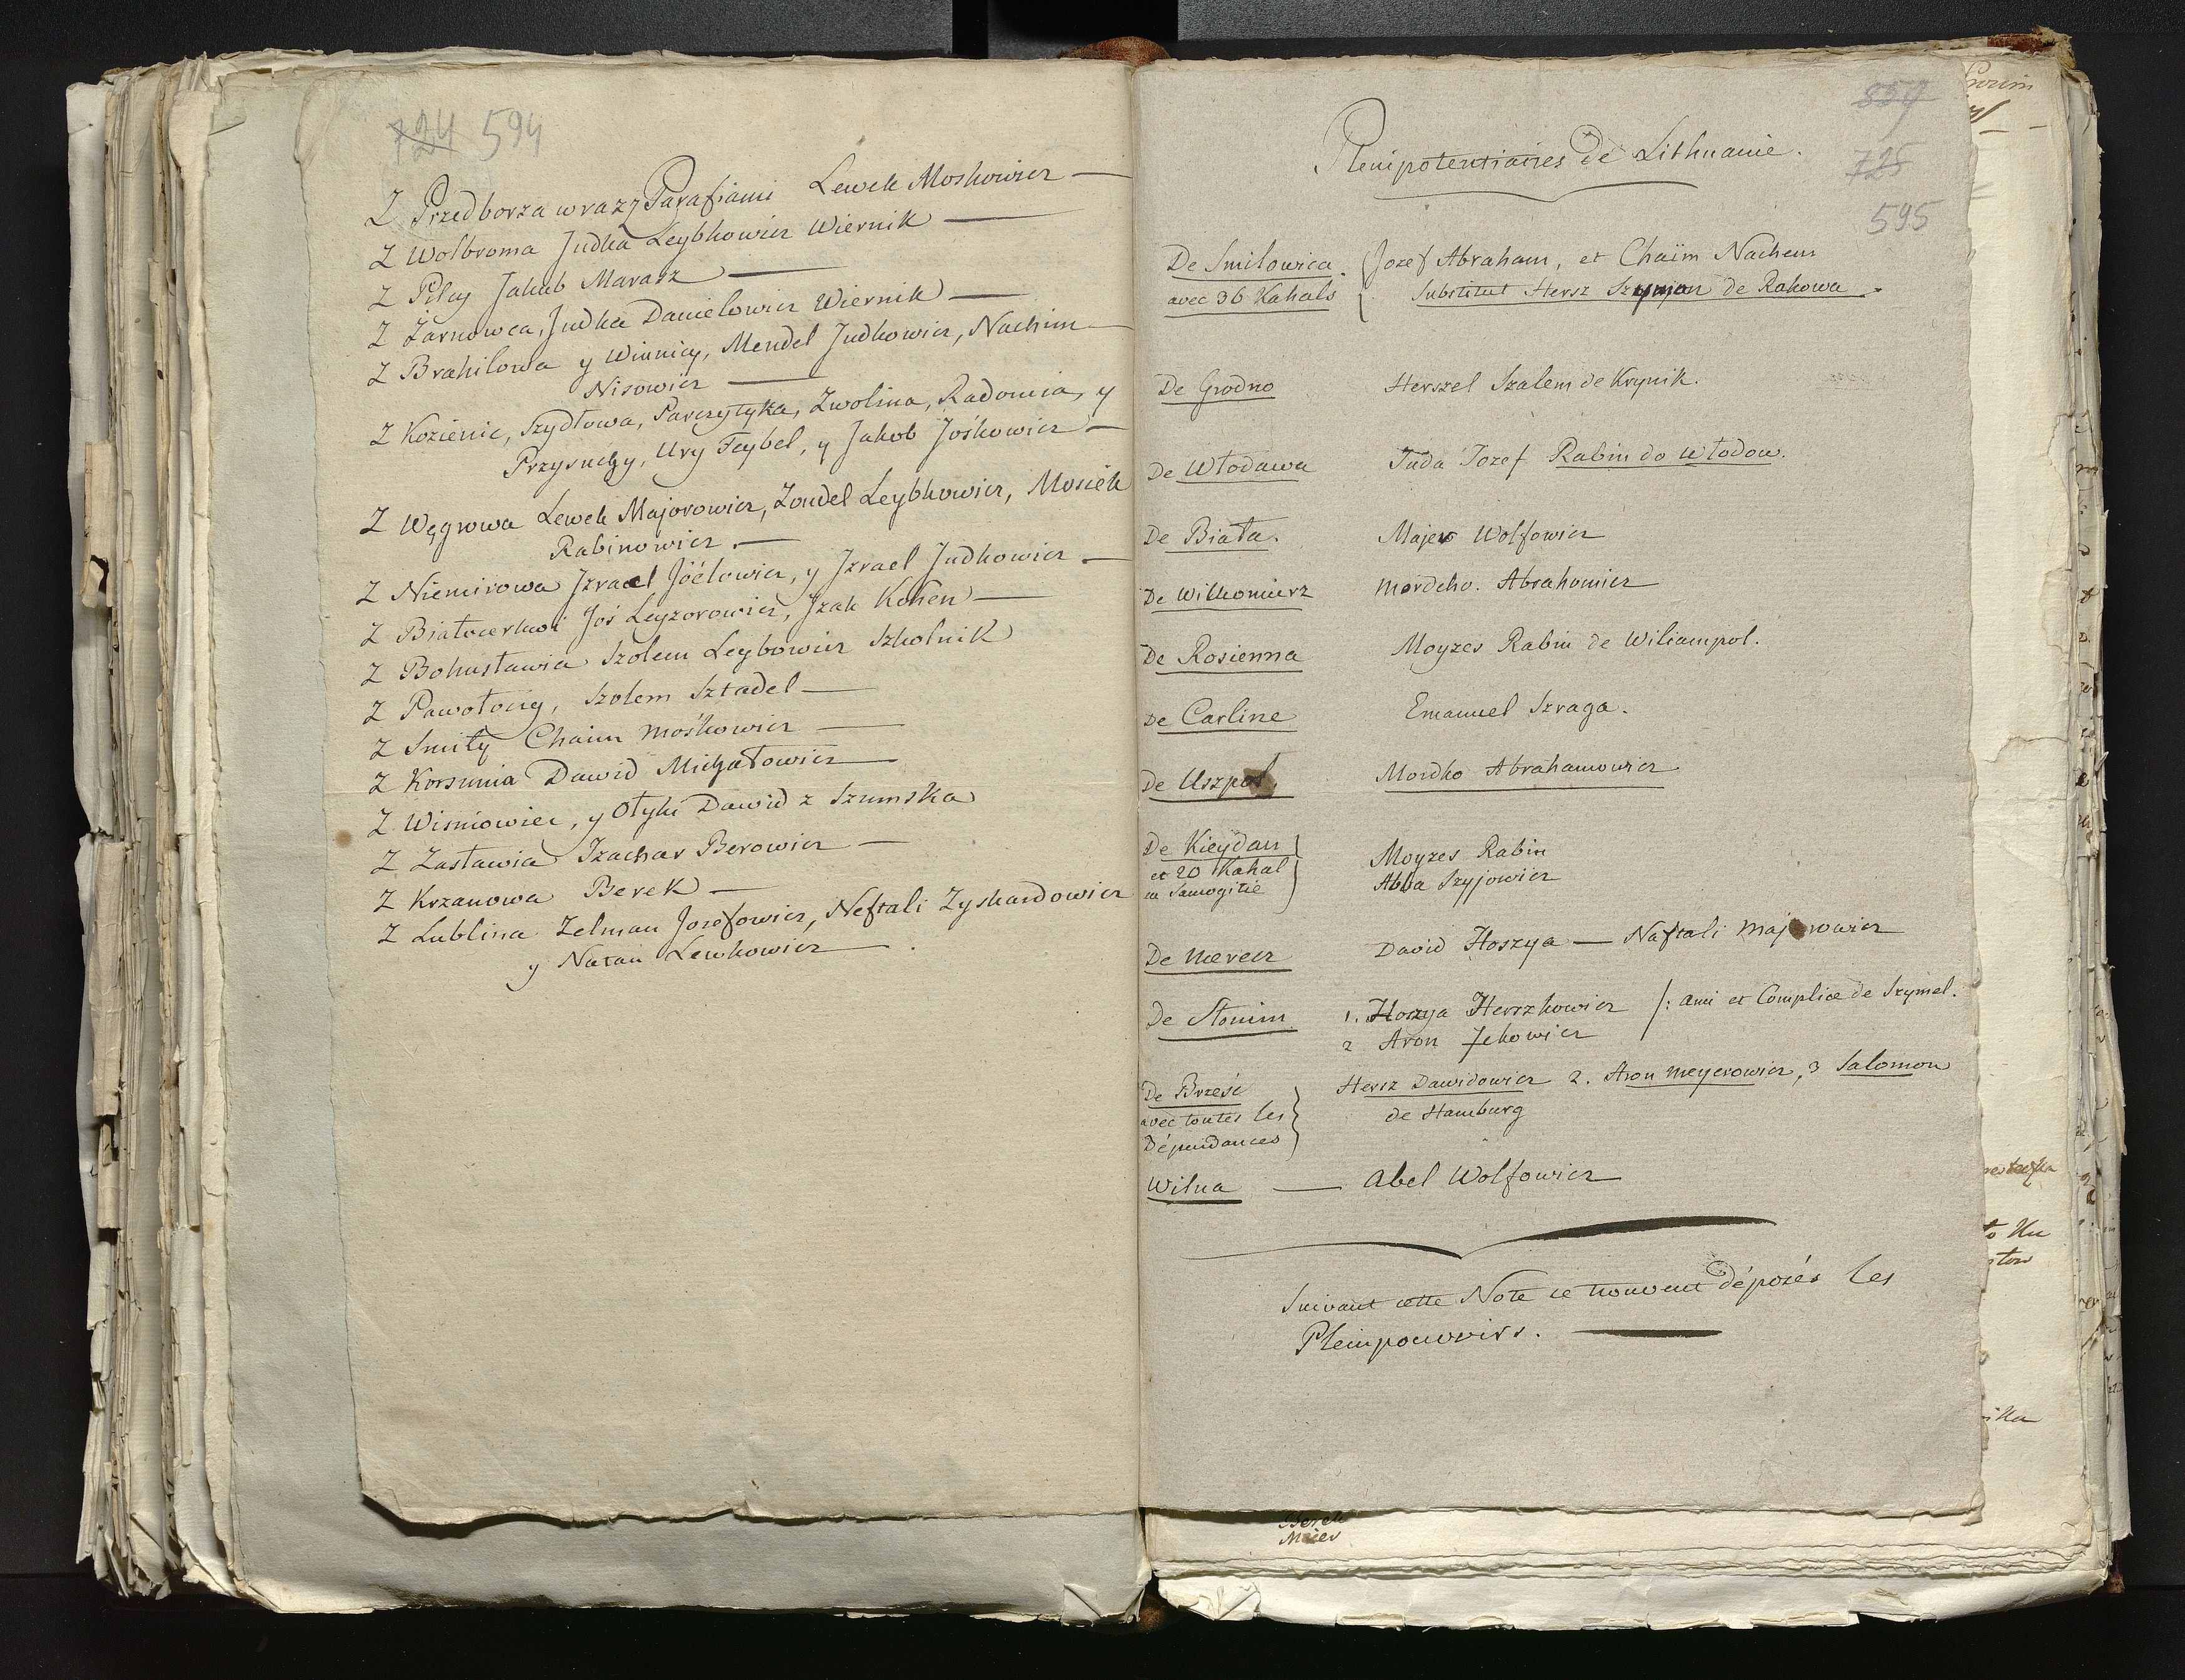 724 594
Z Przedborza wraz z Parafiami Lewek Moskowicz —
Z Wolbroma Judka Leybkowicz Wiernik —
Z Pilcy Jakub Marasz —
Z Żarnowca, Judka Danielowicz Wiernik —
Z Brahilowa y Winnicy, Mendel Judkowicz, Nachim —
Nisowicz —
Z Kozienic, Szydłowa, Parczytyka, Zwolina, Radomia, y
Przysuchy, Ury Feybel, y Jakob Jośkowicz —
Z Węgrowa Lewek Majorowicz, Zondel Leybkowicz, Mosiek
Rabinowicz. —
Z Niemirowa Jzrael Jóelowicz, y Jzrael Judkowicz —
Z Białocerkwi Joś Leyzorowicz, Jzak Kohen —
Z Bohusławia Szolem Leybowicz Szkolnik
Z Pawołoczy, Szolem Sztadel —
Z Smiły Chaim Mośkowicz —
Z Korsunia Dawid Michałowicz —
Z Wisniowiec, y Ołyki Dawid z Szumska
Z Zasławia Jzachar Berowicz —
Z Krzanowa Berek —
Z Lublina Zelman Josefowicz, Neftali Zyskandowicz
y Natan Lewkowicz — .
859
Plenipotentiaires de Lithuanie.
725
595
De Smilowica. Jozef Abraham, et Chaïm Nachem
avec 36 Kahals Substitut Hersz Szyman de Rakowa.
De Grodno Herszel Szalem de Krynik.
De Włodawa Juda Jozef Rabin do Włodow.
De Biała. Majer Wolfowicz
De Wilkomierz Mordcho. Abrahamicz
De Rosienna Moyzes Rabin de Wiliampol.
De Carline Emanuel Szraga.
De Uszpol. Mordko Abrahamowicz
De Kieydan Moyzes Rabin
et 20 Kahal
en Samogitie Abba Szyjowicz
De Merecz David Hoszya — Naftali Majorowicz
De Słonim 1. Hoszya Herszkowicz /: Ami et Complice de Szymel.
2 Aron Jckowicz
De Brześć Hersz Dawidowicz 2. Aron Meyerowicz, 3 Salomon
avec toutes les de Hamburg
Dépendances
Wilna — Abel Wolfowicz
Suivant cette Note se trouvent déposés les
Pleinpouvoirs. —
Berek
Meier